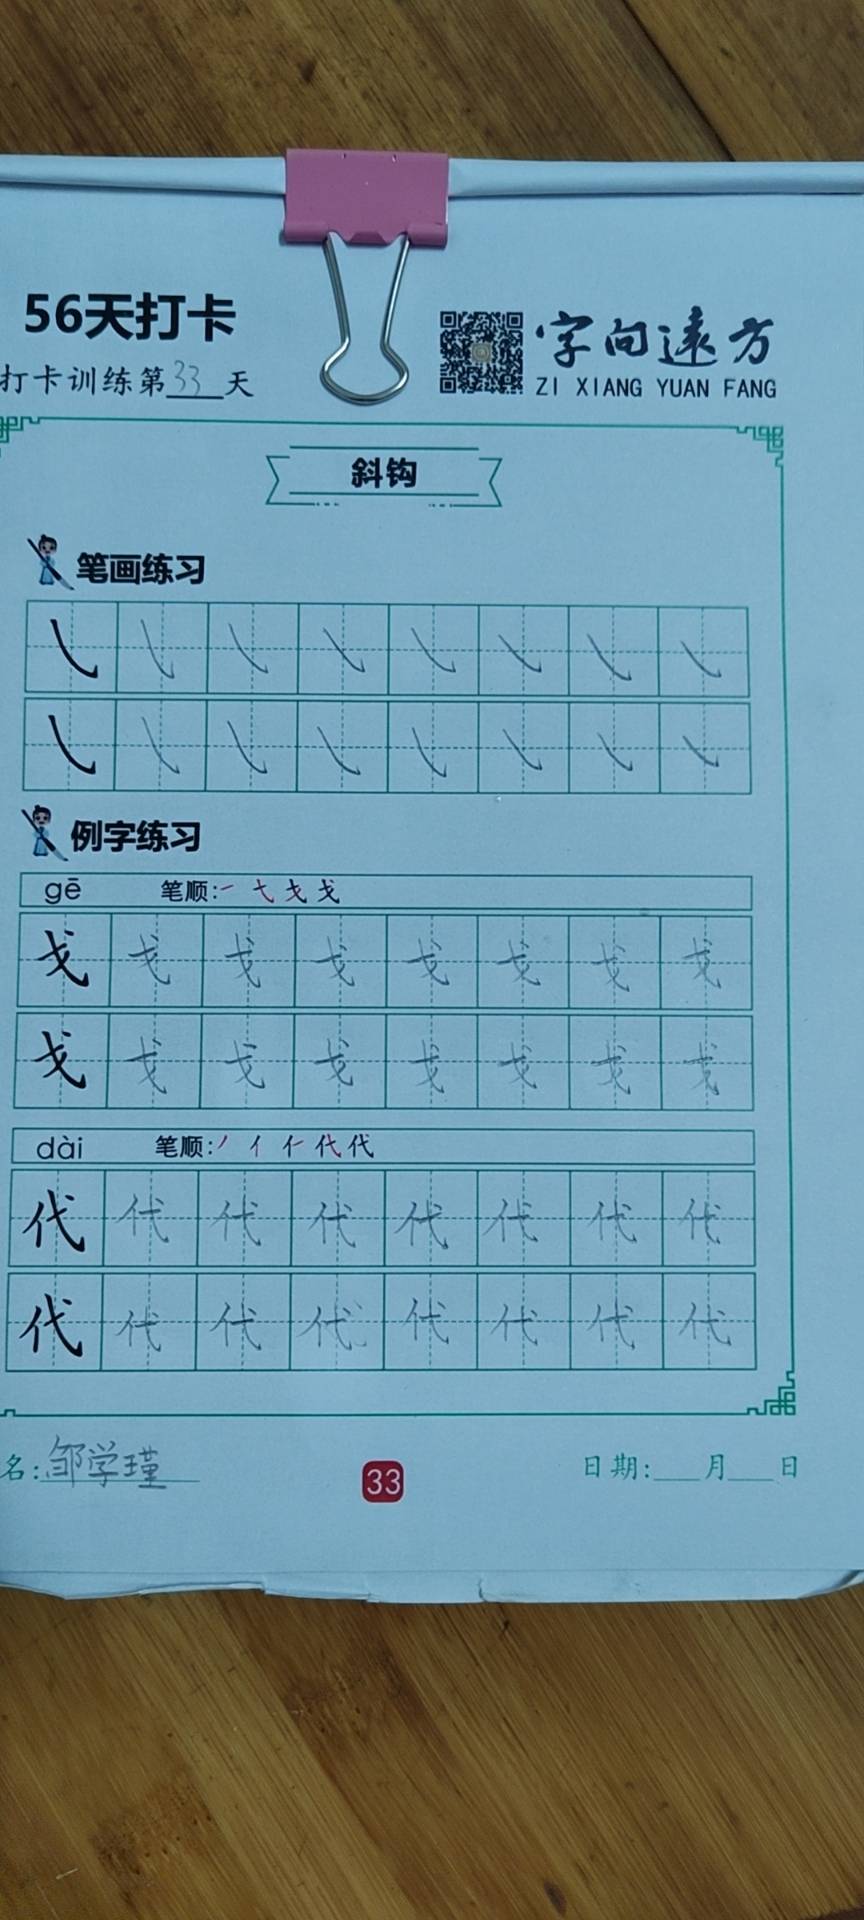 56天打卡
打卡训练第33天
字向远方
ZI XIANG YUAN FANG
斜钩
笔画练习
㇂ ㇂ ㇂ ㇂ ㇂ ㇂ ㇂ ㇂
㇂ ㇂ ㇂ ㇂ ㇂ ㇂ ㇂ ㇂
例字练习
gē 笔顺:
戈 戈 戈 戈 戈 戈 戈 戈
戈 戈 戈 戈 戈 戈 戈 戈
dài 笔顺:
代 代 代 代 代 代 代 代
代 代 代 代 代 代 代 代
名:邹学瑾
33
日期:___月___日